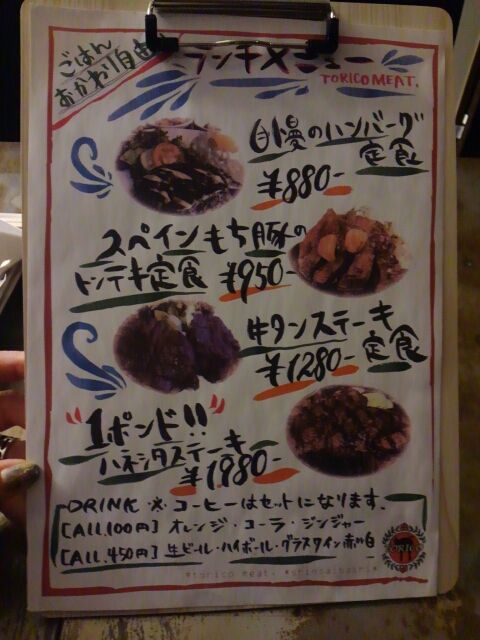 ごはん
おかわり自由
ランチメニュー
TORICO MEAT.
自慢のハンバーグ
定食
¥880-
スペインもち豚の
トンテキ定食 ¥950-
牛タンステーキ
定食
¥1280-
"1ポンド!!"
ハネシタステーキ
¥1980-
DRINK ※コーヒーはセットになります。
[ALL.100円] オレンジ・コーラ・ジンジャー
[ALL.450円] 生ビール・ハイボール・グラスワイン赤or白
TORICO
*torico meat.